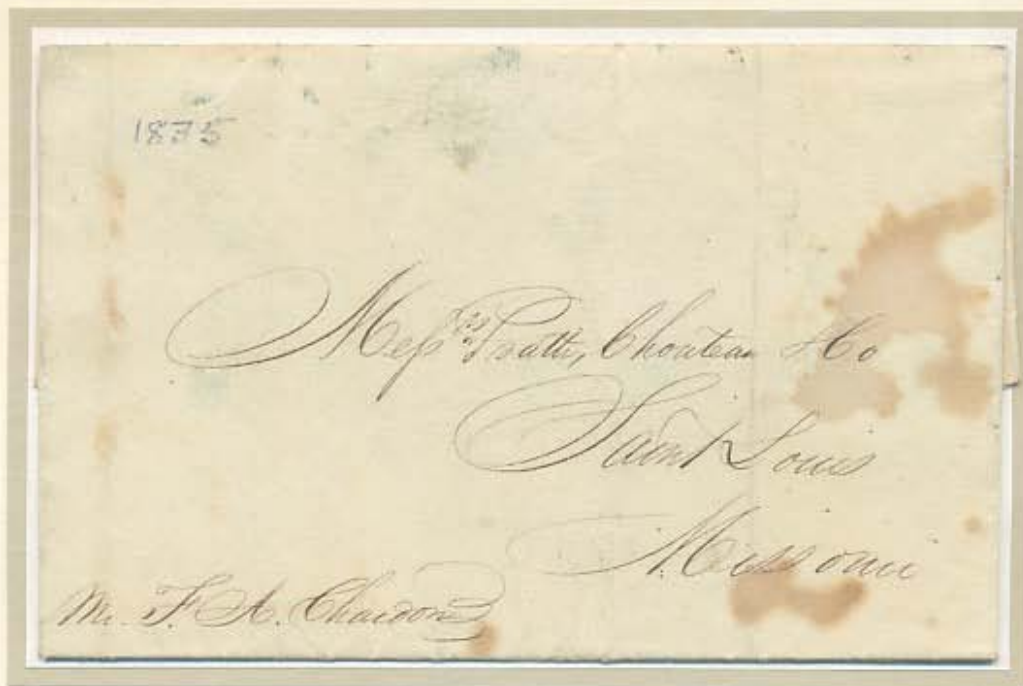 1835
Messrs Pratte, Chouteau & Co
Saint Louis
Missouri
Mr. F. A. Chardon